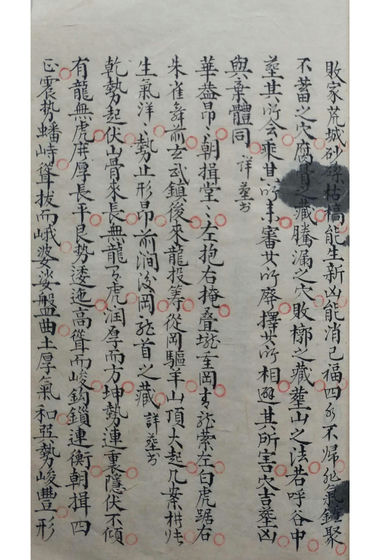 敗家荒城砂碎枯槁能生新凶能消已福四水不歸能氣鐘聚
不蓄之穴腐骨之藏騰漏之穴敗槨之藏葬山之法若呼谷中
葬其所會乘其所來審其所廢擇其所相避其所害穴吉葬凶
與棄體同 詳葬書
華蓋昂昂朝揖堂堂左抱右掩疊壠重岡青龍縈左白虎踞右
朱雀舞前玄武鎮後來龍投筭從岡驅羊山頂大起几案
生氣洋洋勢止形昂前澗後岡龍首之藏 詳葬書
乾勢起伏山骨來長無龍有虎潤厚而方坤勢連裏隱伏不傾
有龍無虎厚長平艮勢逶迤高聳而峻鈎鎖連衡朝揖四
正震勢蟠峙聳拔而峨婆娑盤曲土厚氣和巽勢峻豐形